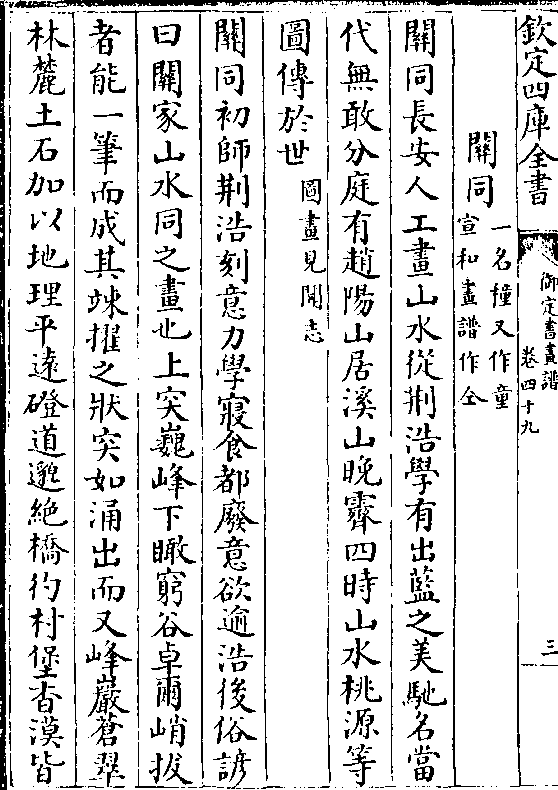 欽定四庫全書
御定書畫譜
卷四十九
三
關同
一名穜又作童
宣和畫譜作仝
關同長安人工畫山水從荆浩學有出藍之美馳名當
代無敢分庭有趙陽山居溪山晚霽四時山水桃源等
圖傳於世
圖畫見聞志
關同初師荆浩刻意力學寢食都廢意欲逾浩後俗諺
曰關家山水同之畫也上突巍峰下瞰窮谷卓爾峭拔
者能一筆而成其竦擢之狀突如涌出而又峰巖蒼翠
林麓土石加以地理平遠磴道邈絶橋彴村堡杳漠皆